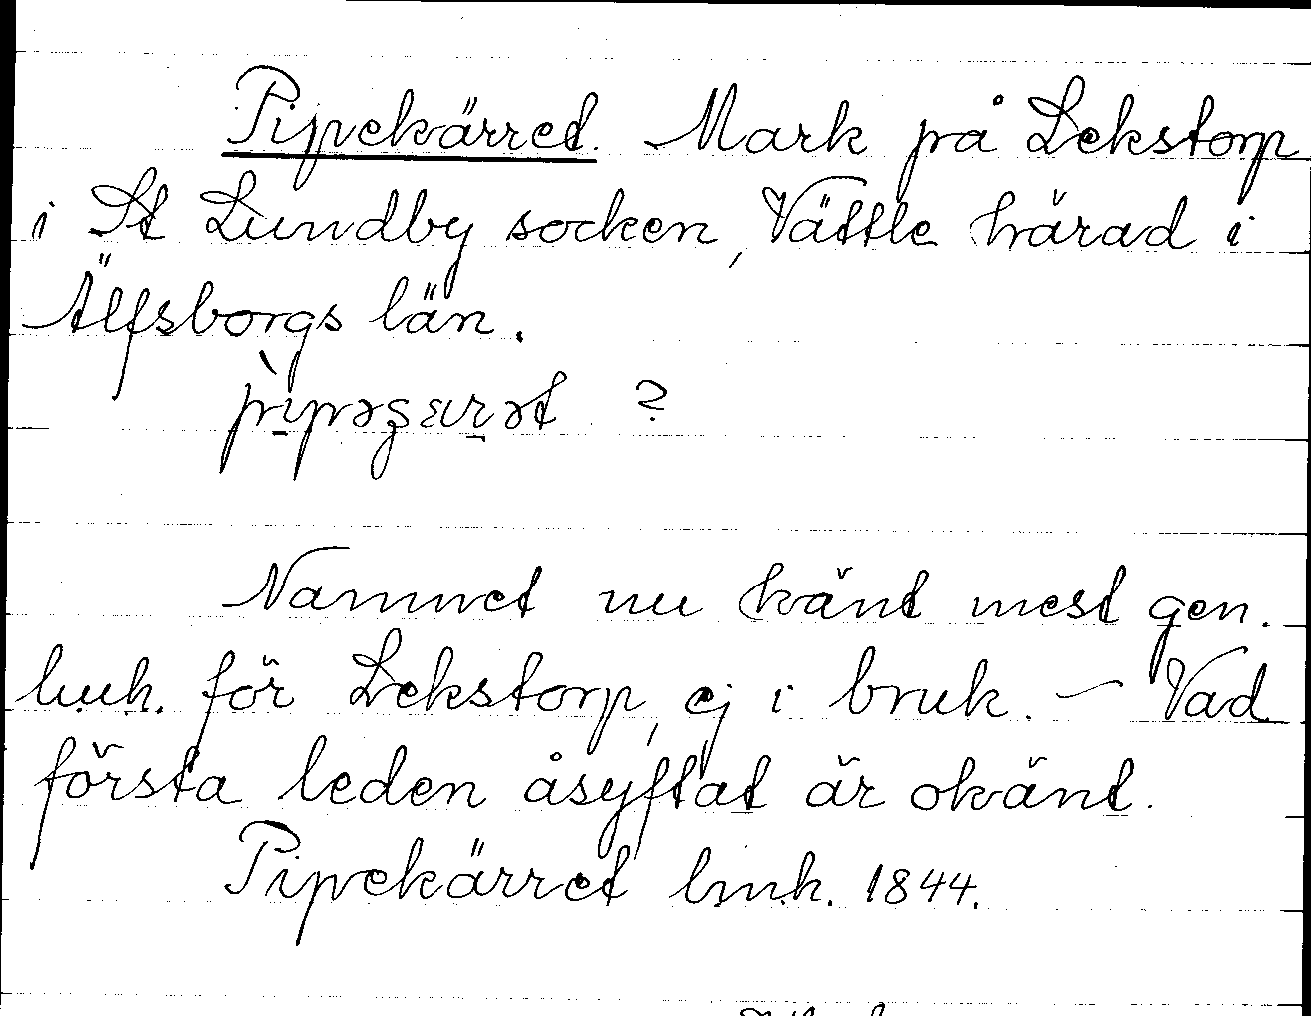 Pipekärret. Mark på Lekstorp
i St Lundby socken, Vättle härad i
Älfsborgs län.
?
Namnet nu känt mest gen.
för Lekstorp, ej i bruk. – Vad
första leden åsyftat är okänt.
Pipekärret lm.h. 1844.